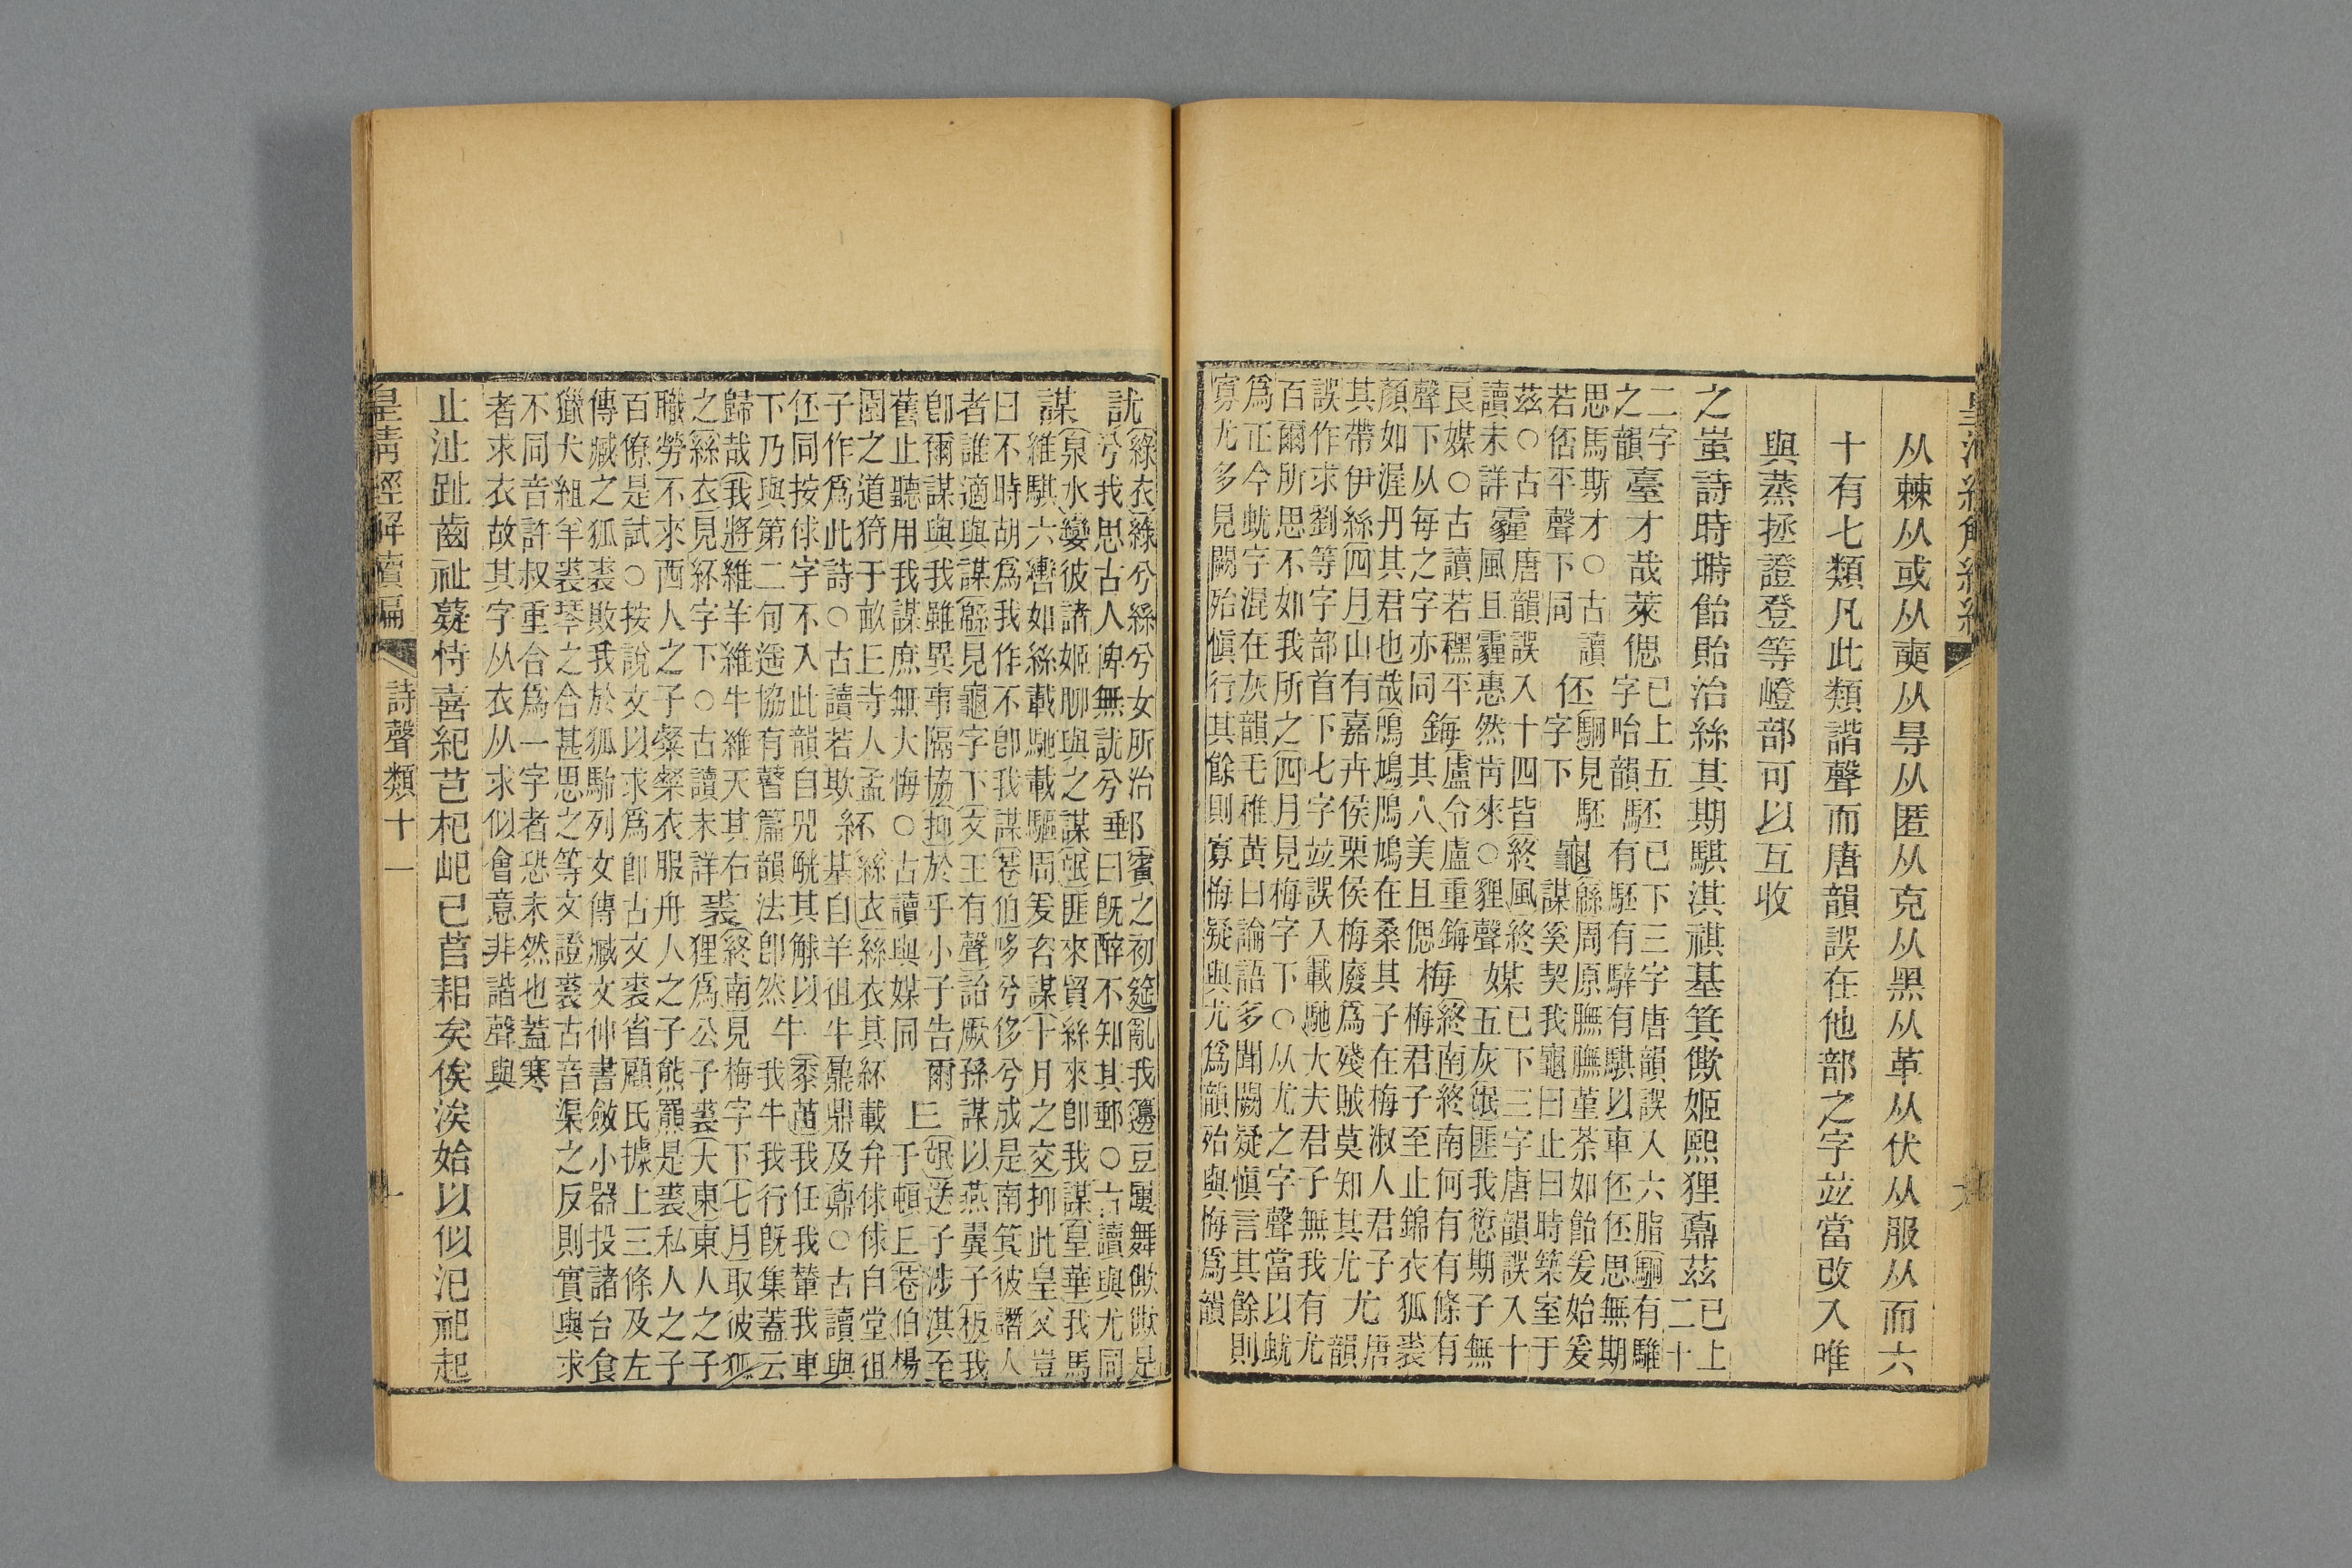 从棘从或从奭从㝵从匿从克从黑从革从伏从服从而六
十有七類凡此類諧聲而唐韻誤在他部之字竝當改入唯
與蒸拯證登等嶝部可以互收
之蚩詩時塒飴貽治絲其期騏淇祺基箕僛姬熙狸鼒茲已上二十
二字之韻臺才哉萊偲已上五字咍韻駓已下三字唐韻誤入六脂駉有騅有駓有騂有騏以車伾伾思無期
思馬斯才○古讀若伾平聲下同伾駉見駓字下龜緜周原膴膴堇荼如飴爰始爰謀爰契我龜曰止曰時築室于
茲○古讀未詳霾唐韻誤入十四皆終風終風且霾惠然肯來○貍聲媒已下三字唐韻誤入十五灰氓匪我愆期子無
良媒○古讀若䆀平聲下从每之字亦同鋂盧令盧重鋂其人美且偲梅終南終南何有有條有梅君子至止錦衣狐裘
顏如渥丹其君也哉鳲鳩鳲鳩在桑其子在梅淑人君子其帶伊絲四月山有嘉卉侯栗侯梅廢爲殘賊莫知其尤尤唐韻
誤作求劉等字部首下七字竝誤入載馳大夫君子無我有尤
百爾所思不如我所之四月見梅字下○从尤之字聲當以蚘
爲正今蚘字混在灰韻毛稚黃曰論語多聞闕疑慎言其餘則
寡尤多見闕殆慎行其餘則寡悔疑與尤爲韻殆與悔爲韻
訧綠衣綠兮絲兮女所治兮我思古人俾無訧兮郵賓之初筵亂我籩豆屢舞僛僛是曰既醉不知其郵○古讀與尤同
謀泉水孌彼諸姬聊與之謀氓匪來貿絲來卽我謀皇華我馬
維騏六轡如絲載馳載驅周爰咨謀十月之交抑此皇父豈
曰不時胡爲我作不卽我謀巷伯哆兮侈兮成是南箕彼譖人
者誰適與謀緜見龜字下文王有聲詒厥孫謀以燕翼子板我
卽爾謀與我雖異事隔協抑於乎小子告爾舊止聽用我謀庶無大悔○古讀與媒同丘氓送子涉淇至于頓丘巷伯楊
園之道猗于畝丘寺人孟子作爲此詩○古讀若欺紑絲衣絲衣其紑載弁俅俅自堂徂基自羊徂牛鼐鼎及鼒○古讀與
伾同按俅字不入此韻自兕觥其觩以下乃與第二句遥協有瞽篇韻法卽然牛黍苗我任我輦我車我牛我行既集蓋云
歸哉我將維羊維牛維天其右之絲衣見紑字下○古讀未詳裘終南見梅字下七月取彼狐狸爲公子裘大東東人之子
職勞不來西人之子粲粲衣服舟人之子熊羆是裘私人之子
百僚是試○按說文以求爲卽古文裘省顧氏據上三條及左
傳臧之狐裘敗我於狐駘列女傳臧文仲書斂小器投諸台食
獵犬組羊裘琴之合甚思之等文證裘古音渠之反則實與求
不同音許叔重合爲一字者恐未然也蓋寒
者求衣故其字从衣从求似會意非諧聲與
止沚趾齒祉薿恃喜紀芑杞屺已苢耜矣俟涘始以似汜祀起
皇清經解續編 詩聲類十一